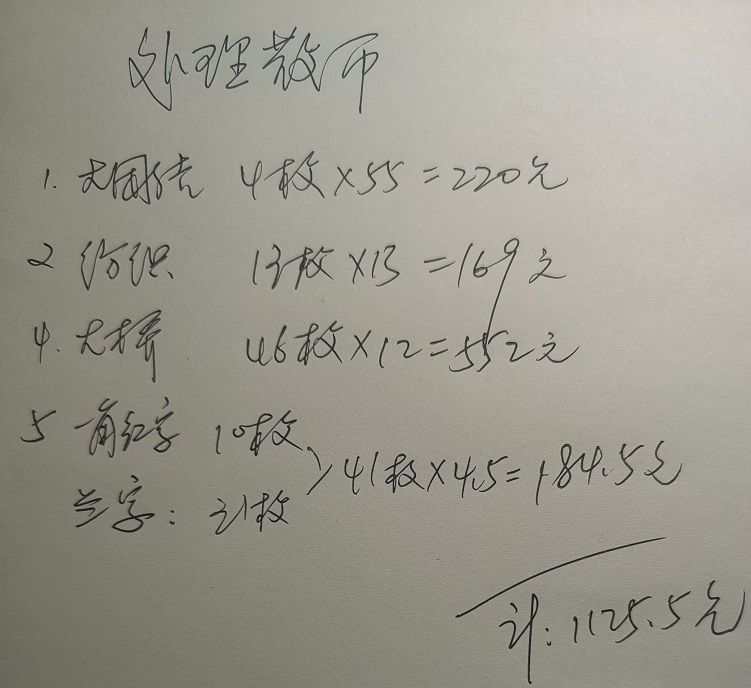 处理散币
1. 大团结 4枚×55=220元
2 纺织 13枚×13=169元
4. 大桥 46枚×12=552元
5 一角红字 10枚
兰字: 31枚
41枚×4.5=184.5元
计: 1125.5元